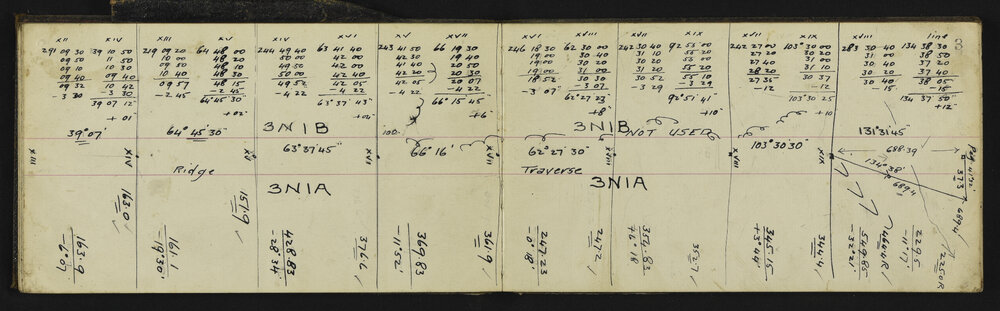 XII XIV XIII XV XIV XVI XV XVII XVI XVIII XVII XIX XVIII XIX line
291 09 30 39 10 50 219 09 20 64 48 00 244 49 40 63 41 40 243 41 50 66 19 30 246 18 30 62 30 00 242 30 40 92 55 00 242 27 00 103° 30 00 283 30 40 134 38 30
09 50 11 50 10 00 48 20 50 00 42 00 42 30 19 40 19 00 30 40 31 10 55 20 27 20 31 00 31 00 37 20
09 10 10 30 09 10 48 10 49 50 42 00 41 40 20 50 19 00 31 00 30 20 55 00 27 40 31 00 30 20 37 40
09 40 09 40 10 40 48 30 50 00 42 40 42 20 20 30 19 00 30 20 31 20 55 20 28 20 30 20 30 40 38 20
09 32 10 42 09 57 48 15 49 52 42 05 42 05 20 07 18 52 30 30 30 52 55 10 27 35 30 37 30 40 38 05
-3 30 -3 30 -2 45 -2 45 -4 22 -4 22 -4 22 -4 22 -3 07 -3 07 -3 29 -3 29 -12 -12 -15 -15
39 07 12 64° 45 30 63° 37' 43" 66° 15 45 62° 27 23 92° 51 41" 103° 30 25 134 37 50"
+01' +02" +02" +6" +8" +10" +10 +12"
39° 07' 64° 45' 30 3N1B 100. 3N1B NOT USED 131°31'45"
63° 37' 45" 66° 16' 62° 27' 30" 103° 30 30 688.39
XIII XIV XV XVI XVII XVIII XVIII XIX
Ridge Traverse
3N1A 3N1A
134° 38'
689.4
373
689.4
163.0 151.9 376.6 361.9 247.2 352.7 344.4
163.9 161.1 428.83 369.83 247.23 354.83 345.15 549.85 229.5
-6° 07' -19° 30' -28° 34' -11° 52' +6° 18' +3° 44' -32° 21' -11° 17'
464.4R 225.0R